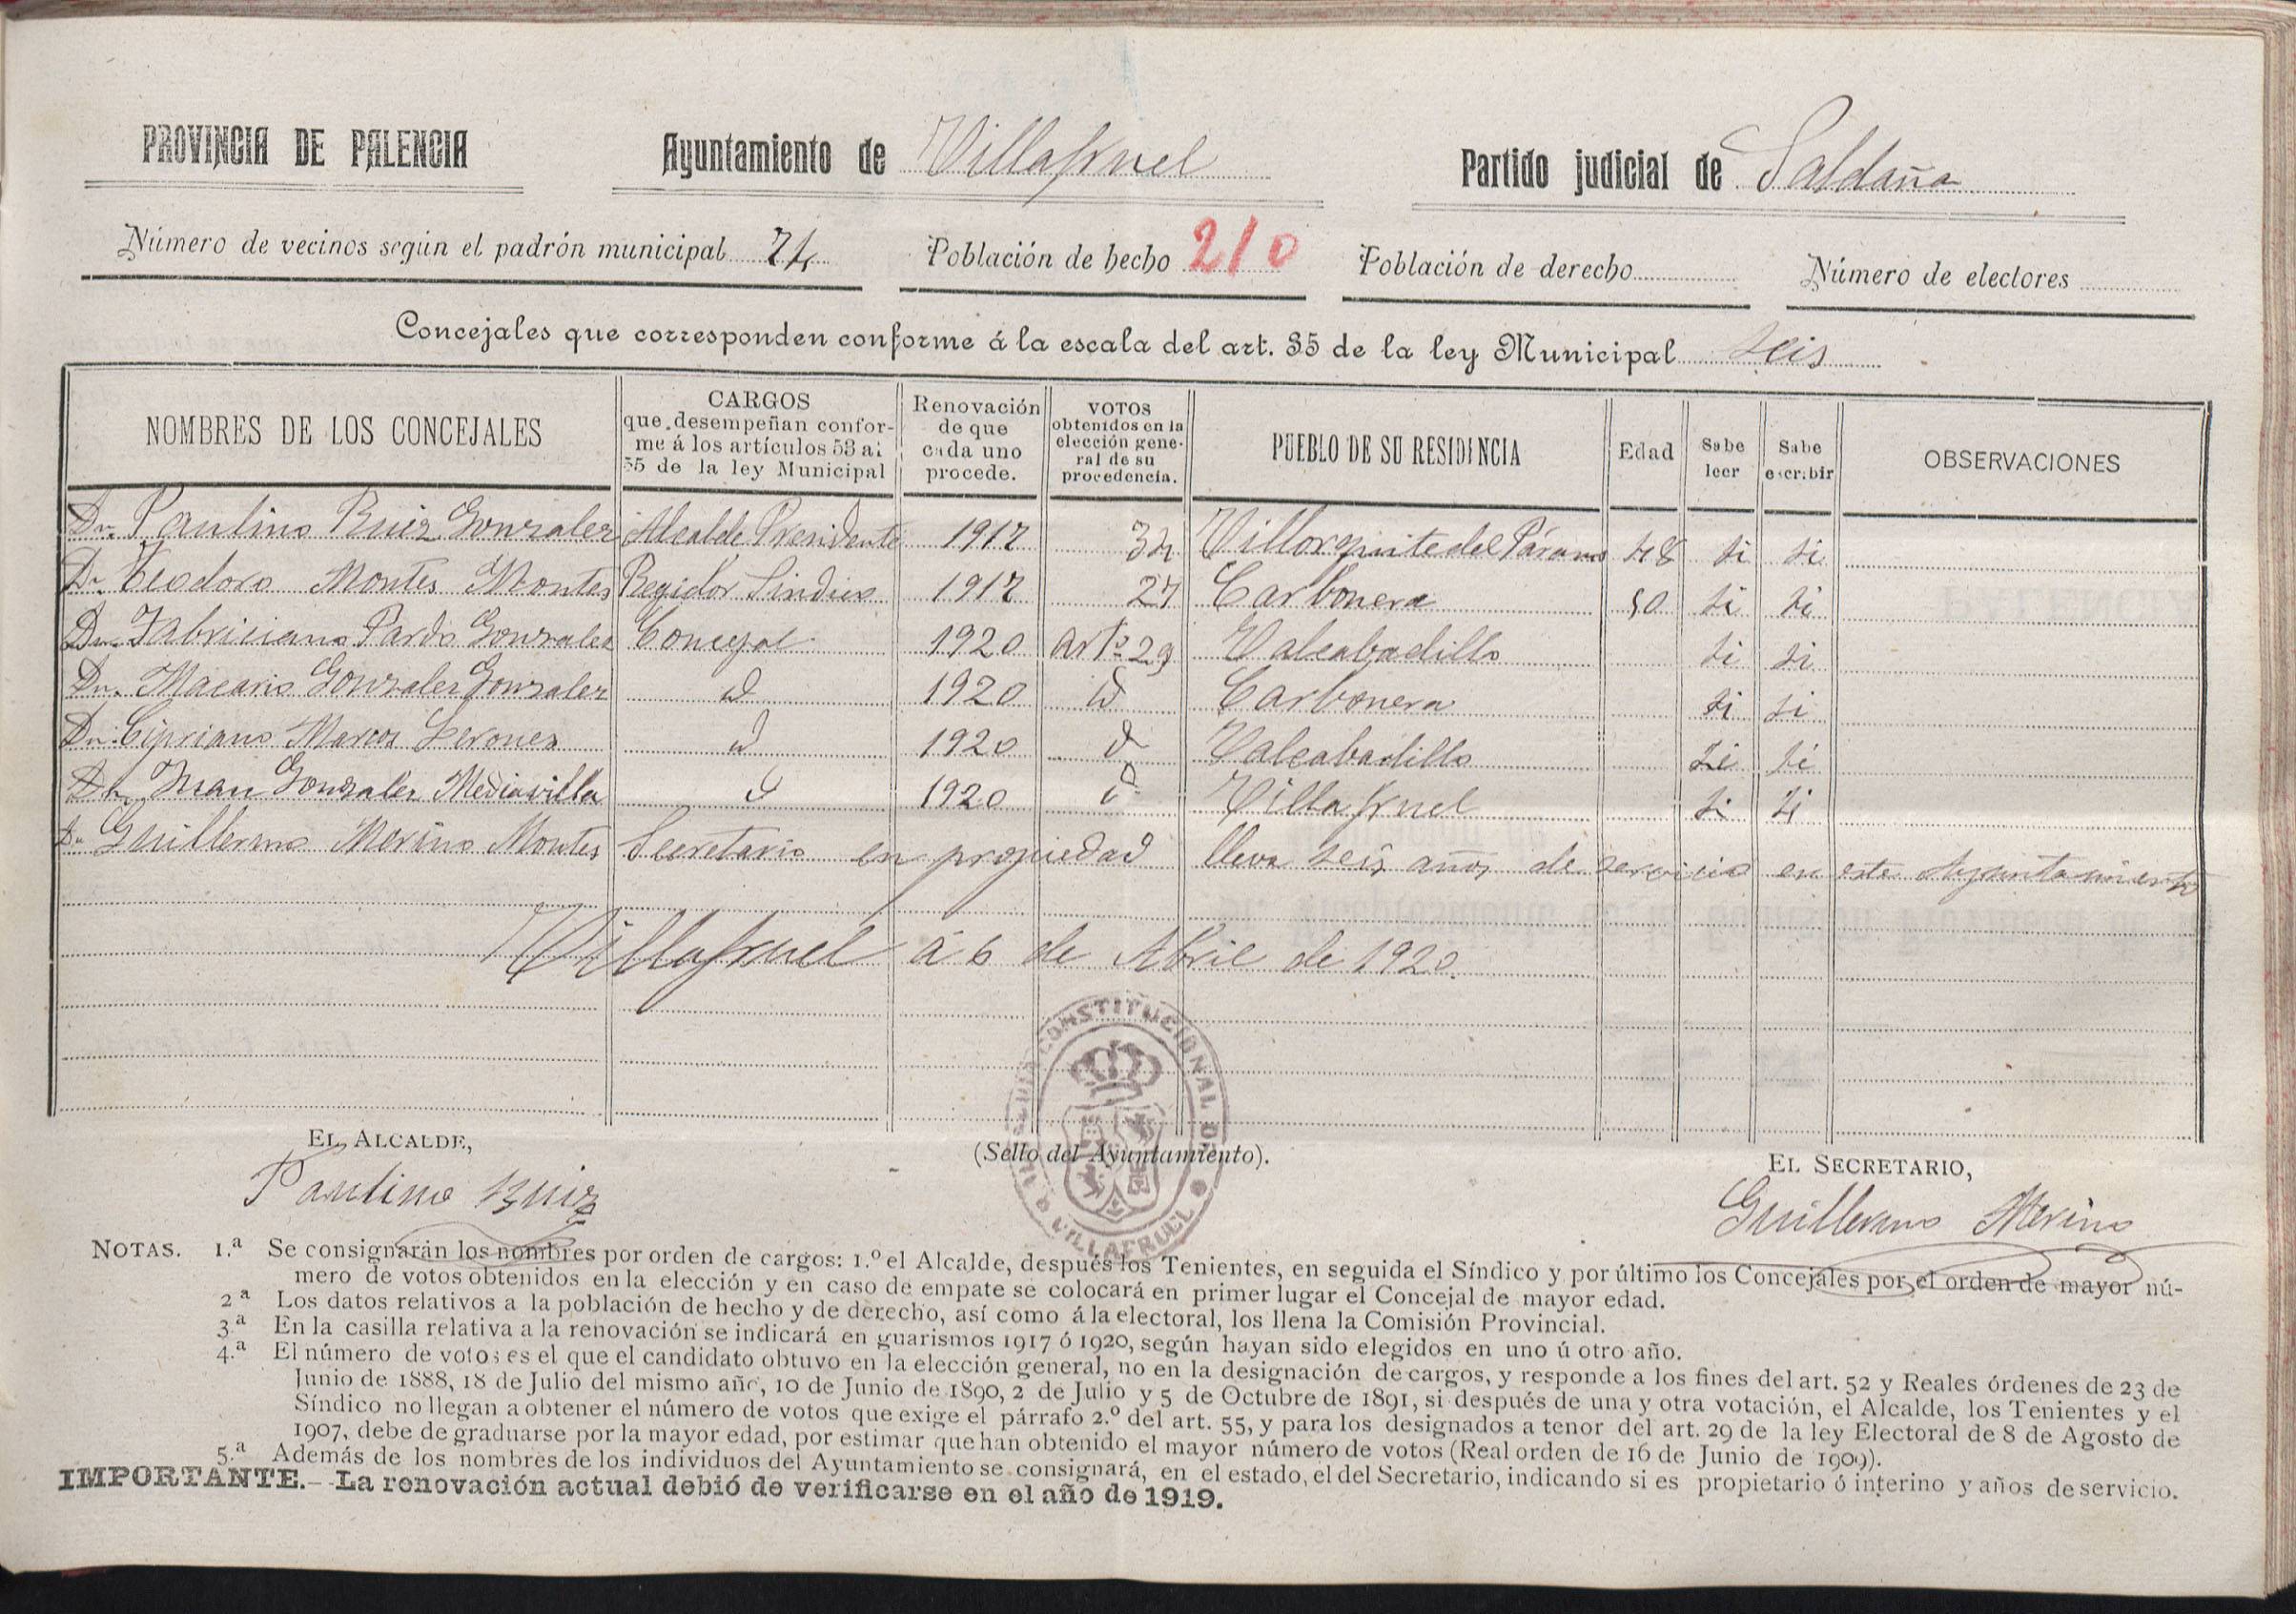 PROVINCIA DE PALENCIA Ayuntamiento de Villafruel Partido judicial de Saldaña
Número de vecinos según el padrón municipal 74 Población de hecho 210 Población de derecho Número de electores
Concejales que corresponden conforme á la escala del art. 35 de la ley Municipal seis
NOMBRES DE LOS CONCEJALES
CARGOS
que desempeñan confor-
me á los artículos 53 al
55 de la ley Municipal
Renovación
de que
cada uno
procede.
VOTOS
obtenidos en la
elección gene-
ral de su
procedencia.
PUEBLO DE SU RESIDENCIA
Edad
Sabe
leer
Sabe
escribir
OBSERVACIONES
Dn. Paulino Ruiz Gonzalez Alcalde Presidente 1917 34 Villorquite del Páramo 48 si si
Dn. Teodoro Montes Montes Regidor Sindico 1917 27 Carbonera 50 si si
Dn. Fabriciano Pardo Gonzalez Concejal 1920 artº 29 Valcabadillo si si
Dn. Macario Gonzalez Gonzalez id 1920 id Carbonera si si
Dn. Cipriano Marcos Serones id 1920 id Valcabadillo si si
Dn. Juan Gonzalez Mediavilla id 1920 id Villafruel si si
Dn. Guillermo Merino Montes Secretario en propiedad lleva seis años de servicio en este Ayuntamiento
Villafruel á 6 de Abril de 1920.
CONSTITUCIONAL DE VILLAFRUEL
EL ALCALDE,
(Sello del Ayuntamiento).
EL SECRETARIO,
Paulino Ruiz
Guillermo Merino
NOTAS. 1.ª Se consignarán los nombres por orden de cargos: 1.º el Alcalde, después los Tenientes, en seguida el Síndico y por último los Concejales por el orden de mayor nú-
mero de votos obtenidos en la elección y en caso de empate se colocará en primer lugar el Concejal de mayor edad.
2ª Los datos relativos a la población de hecho y de derecho, así como á la electoral, los llena la Comisión Provincial.
3.ª En la casilla relativa a la renovación se indicará en guarismos 1917 ó 1920, según hayan sido elegidos en uno ú otro año.
4.ª El número de votos es el que el candidato obtuvo en la elección general, no en la designación de cargos, y responde a los fines del art. 52 y Reales órdenes de 23 de
Junio de 1888, 18 de Julio del mismo año, 10 de Junio de 1890, 2 de Julio y 5 de Octubre de 1891, si después de una y otra votación, el Alcalde, los Tenientes y el
Síndico no llegan a obtener el número de votos que exige el párrafo 2.º del art. 55, y para los designados a tenor del art. 29 de la ley Electoral de 8 de Agosto de
1907, debe de graduarse por la mayor edad, por estimar que han obtenido el mayor número de votos (Real orden de 16 de Junio de 1909).
5.ª Además de los nombres de los individuos del Ayuntamiento se consignará, en el estado, el del Secretario, indicando si es propietario ó interino y años de servicio.
IMPORTANTE.—La renovación actual debió de verificarse en el año de 1919.